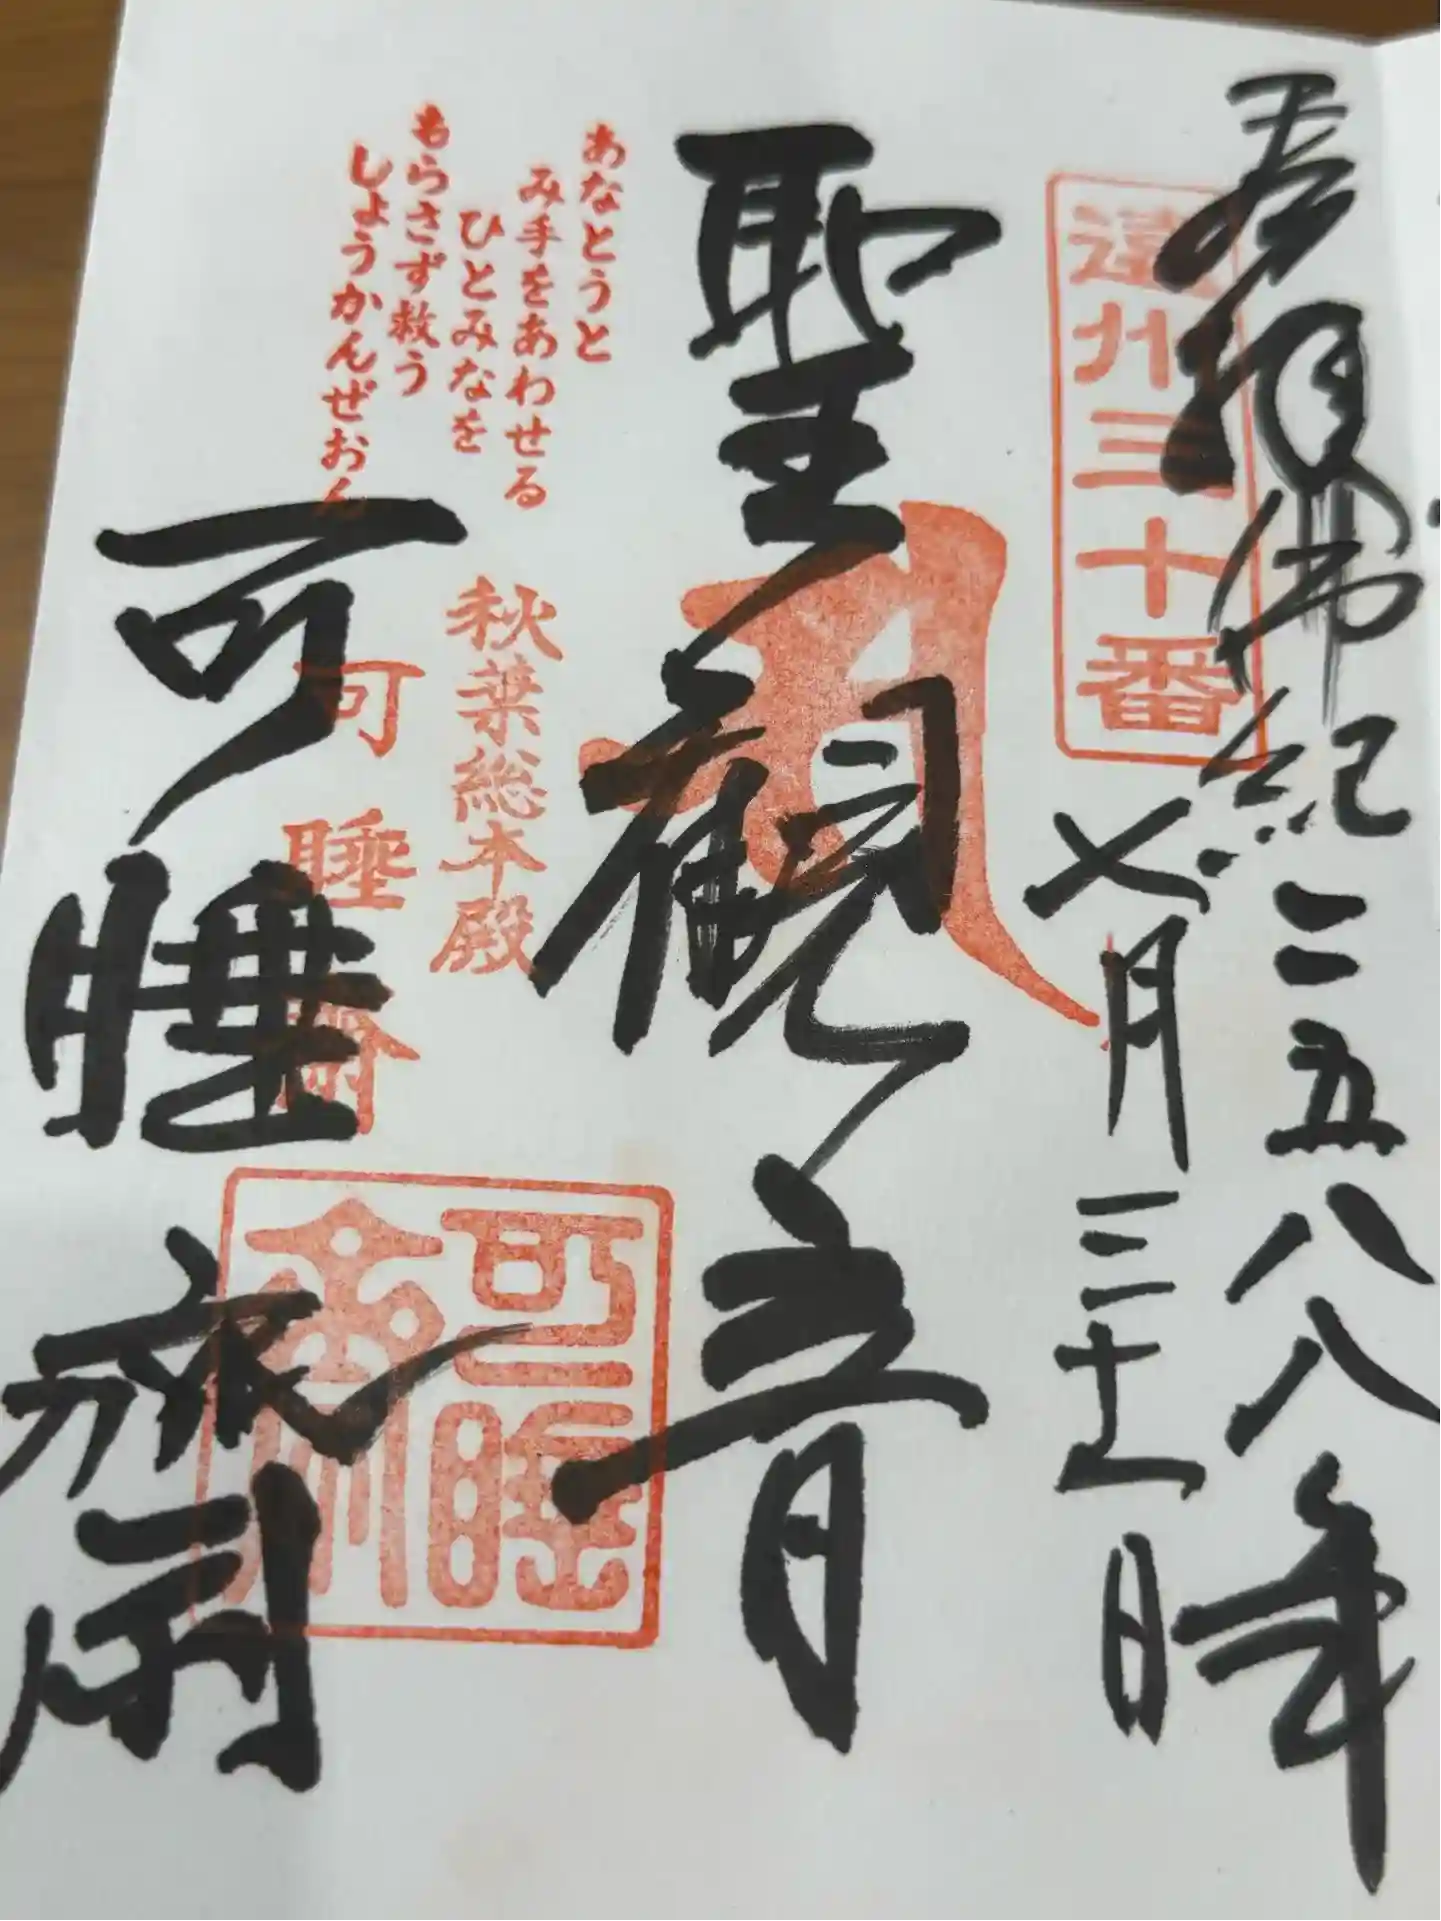 奉拝 佛紀二五八八年
七月三十一日
遠州三十番
聖觀音
あなとうと
み手をあわせる
ひとみなを
もらさず救う
しょうかんぜおん
秋葉総本殿
可睡齋
可睡齋
可睡齋